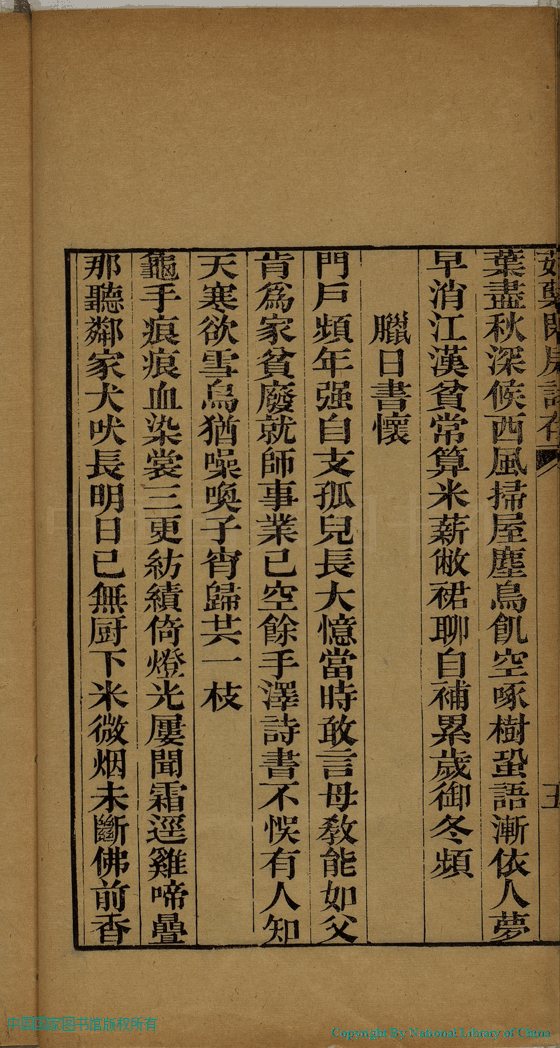 葉盡秋深候西風掃屋塵鳥飢空啄樹蛩語漸依人夢
早消江漢貧常算米薪敝裙聊自補累歲御冬頻
臘日書懷
門戶頻年强自支孤兒長大憶當時敢言母教能如父
肯爲家貧廢就師事業已空餘手澤詩書不悞有人知
天寒欲雪烏猶噪喚子宵歸共一枝
龜手痕痕血染裳三更紡績倚燈光屢聞霜逕雞啼疊
那聽鄰家犬吠長明日已無厨下米微烟未斷佛前香
中国国家图书馆版权所有
Copyright By National Library of China